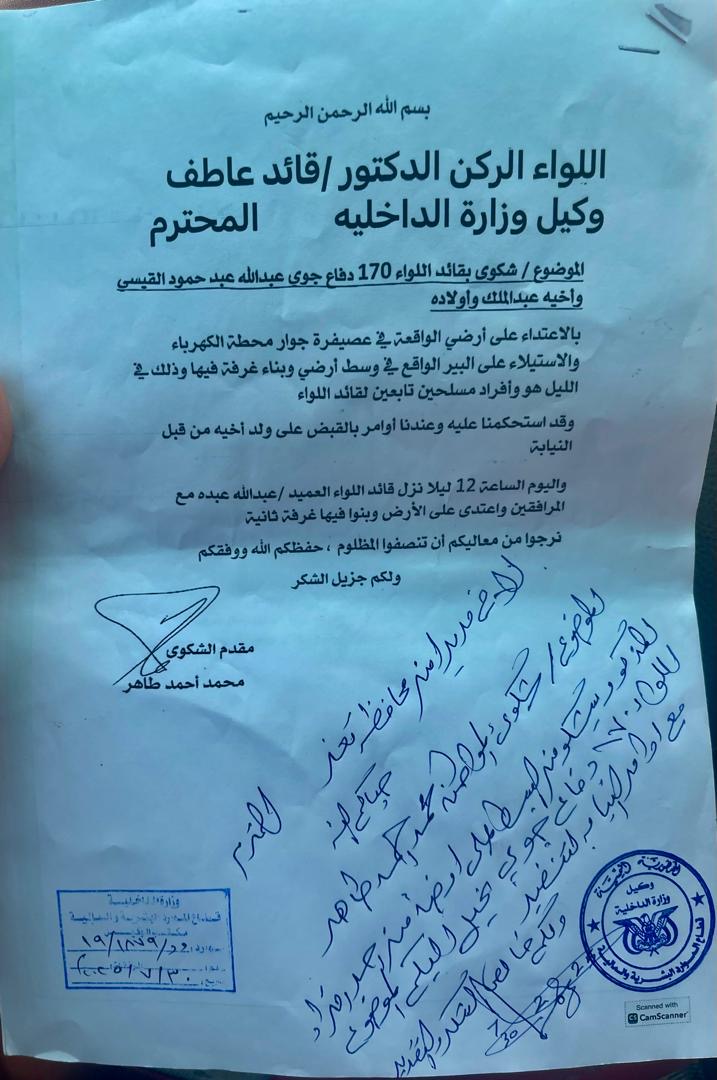 بسم الله الرحمن الرحيم
اللواء الركن الدكتور /قائد عاطف
وكيل وزارة الداخليه المحترم
الموضوع / شكوى بقائد اللواء 170 دفاع جوي عبدالله عبد حمود القيسي
وأخيه عبدالملك وأولاده
بالاعتداء على أرضي الواقعة في عصيفرة جوار محطة الكهرباء
والاستيلاء على البير الواقع في وسط أرضي وبناء غرفة فيها وذلك في
الليل هو وأفراد مسلحين تابعين لقائد اللواء
وقد استحكمنا عليه وعندنا أوامر بالقبض على ولد أخيه من قبل
النيابة
واليوم الساعة 12 ليلا نزل قائد اللواء العميد /عبدالله عبده مع
المرافقين واعتدى على الأرض وبنوا فيها غرفة ثانية
نرجوا من معاليكم أن تنصفوا المظلوم ، حفظكم الله ووفقكم
ولكم جزيل الشكر
مقدم الشكوى
محمد أحمد طاهر
الاخ مدير امن محافظة تعز المحترم
حياكم الله
الموضوع / شكوى المواطن محمد احمد طاهر
المذكور يشكو من
اللواء ١٧٠ دفاع جوي نحيل اليكم الموضوع
مع اوامر النيابة
ولكم خالص الشكر والتقدير
وزارة الداخلية
قطاع الموارد البشرية والمالية
الجمهورية اليمنية
وكيل
وزارة الداخلية
قطاع الموارد البشرية والمالية
Scanned with
CS CamScanner